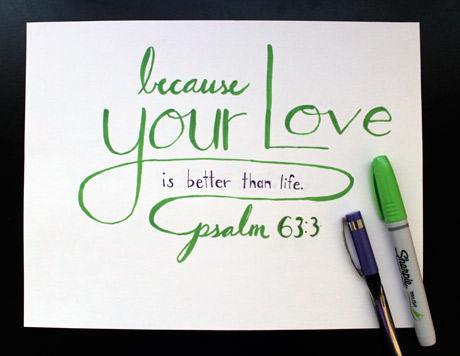 because
your Love
is better than life.
psalm 63:3
Sharpie